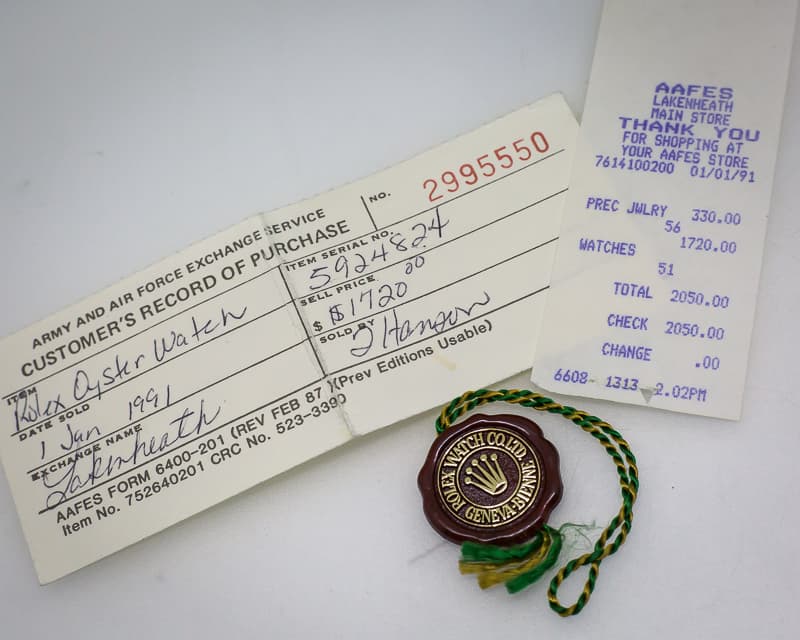 ARMY AND AIR FORCE EXCHANGE SERVICE
CUSTOMER'S RECORD OF PURCHASE
NO. 2995550
ITEM
Rolex Oyster Watch
ITEM SERIAL NO.
5924824
DATE SOLD
1 Jan 1991
SELL PRICE
$ $1720 00
EXCHANGE NAME
Lakenheath
SOLD BY
J Hanson
AAFES FORM 6400-201 (REV FEB 87) (Prev Editions Usable)
Item No. 752640201 CRC No. 523-3390
AAFES
LAKENHEATH
MAIN STORE
THANK YOU
FOR SHOPPING AT
YOUR AAFES STORE
7614100200 01/01/91
PREC JWLRY 330.00
56
WATCHES 1720.00
51
TOTAL 2050.00
CHECK 2050.00
CHANGE .00
6608 1313 2.02PM
ROLEX WATCH CO.LTD.
GENEVA·BIENNE